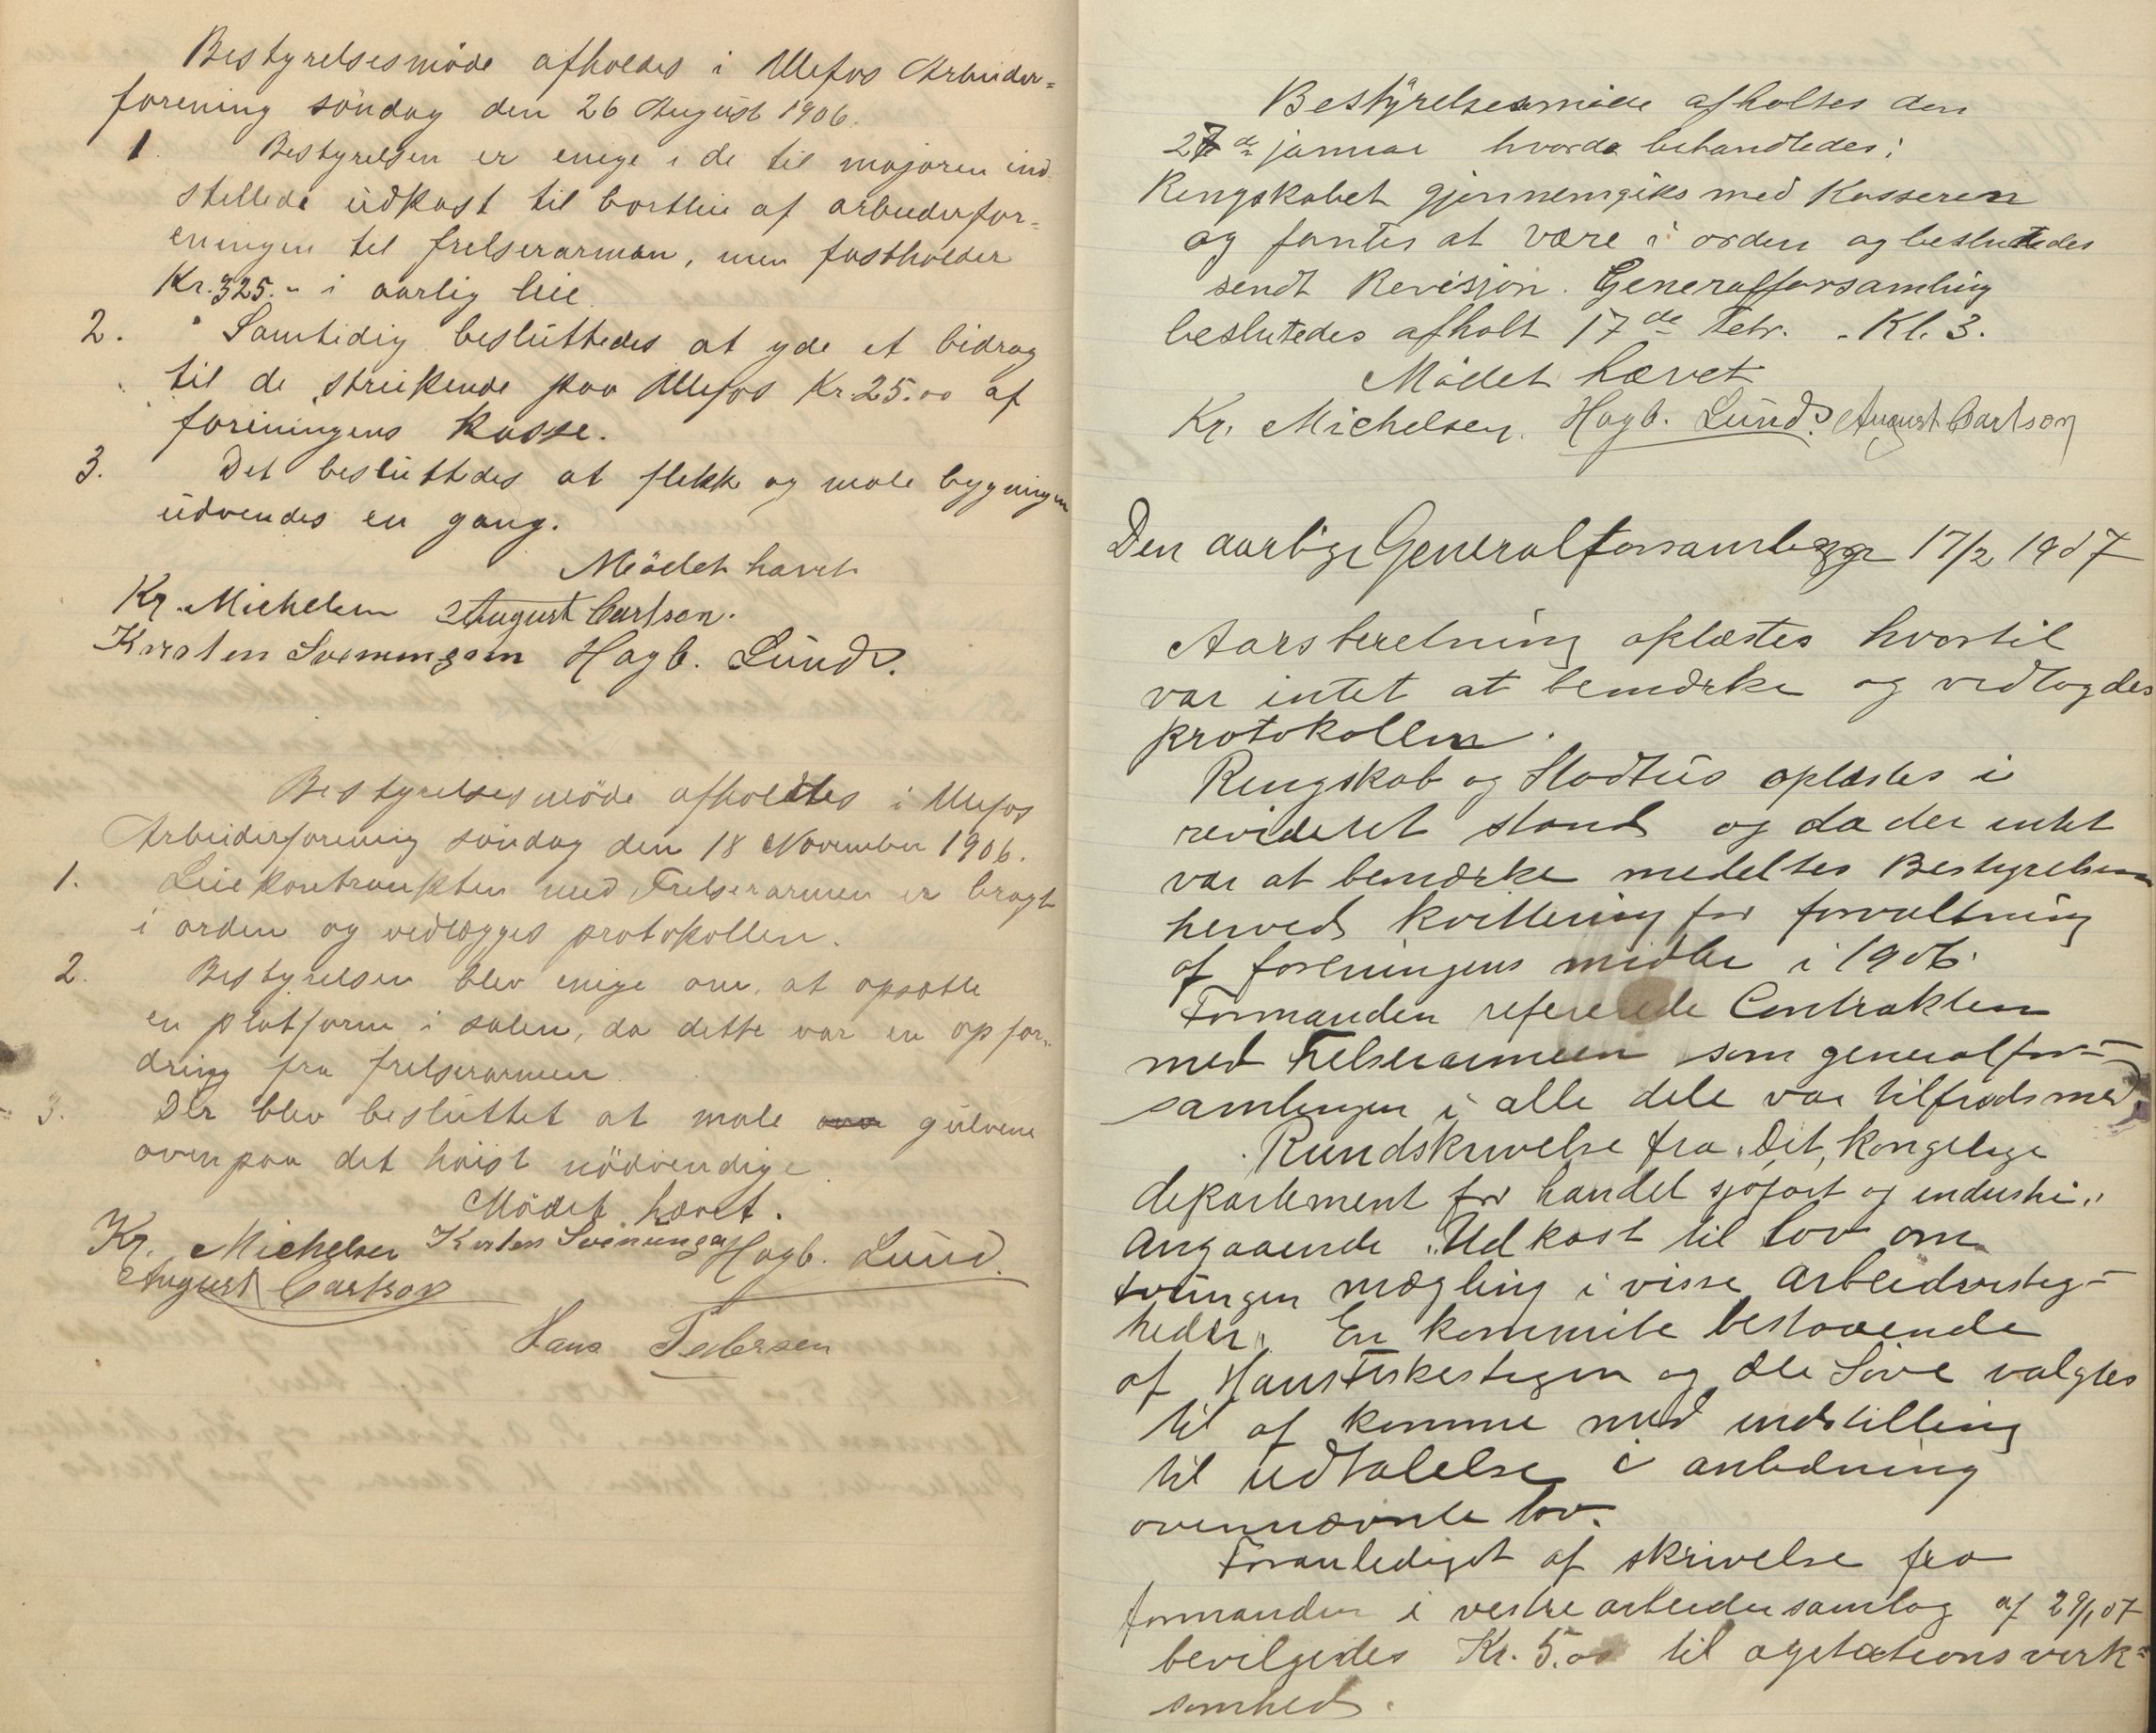 Bestyrelsesmöde afholdes i Ulefos Arbeider=
forening söndag den 26 August 1906.
1. Bestyrelsen er enige i de til majoren ind
stillede üdkast til bortleie af arbeiderfor=
eningen til frelserarmen, men fastholder
Kr. 325.- i aarlig leie.
2. Samtidig beslüttedes at yde et bidrag
til de streikende paa Ulefos Kr. 25.00 af
foreningens Kasse.
3. Det beslüttedes at flekke og male bygningen
üdvendes en gang.
Mödet hævet
Kr. Michelsen August Carlson.
Kirsten Svenningsen Hagb. Lünd.
Bestyrelsesmöde afholdtes i Ulefos
Arbeiderforening söndag den 18 November 1906.
1. Leiekontrankten med Frelserarmen er bragt
i orden og vedlægges protokollen.
2. Bestyrelsen blev enige om, at opsætte
en platform i salen, da dette var en opfor=
dring fra frelserarmen.
3. Der blev beslüttet at male gülvene
ovenpaa det höist nödvendige.
Mödet hævet.
Kr. Michelsen Kirsten Svenungsen Hagb. Lünd.
August Carlson
Hans Pedersen
Bestyrelsesmöde afholtes den
27de januar hvorda behandledes:
Rengskabet gjennemgiks med Kasseren
og fantes at være i orden og beslutedes
sendt Revisjon. Generalforsamling
beslutedes afholt 17de Febr. - Kl. 3.
Mödet hævet
Kr. Michelsen. Hagb. Lünd. August Carlson
Den aarlige Generalforsamling 17/2 1907
Aarsberetning oplæstes hvortil
var intet at bemærke og vedlagdes
protokollen.
Rengskab og Stadtüs oplæstes i
revideret stand og da der intet
var at bemærke medeltes Bestyrelsen
herved kvittering for forvaltning
af foreningens midler i 1906.
Formanden refererede Contrakten
med Frelserarmeen som generalfor=
samlingen i alle dele var tilfreds med
Rundskrivelse fra "Det kongelige
departement for handel sjøfart og industri"
Angaaende "Udkast til lov om
tvüngen mægling i visse arbeidsvistig=
heder". En kommite bestaaende
af Hans Fiskestegen og Ole Sove valgtes
til af komme med indstilling
til üdtalelse i anledning
ovennævnte lov.
Foranlediget af skrivelse fra
formanden i vestre arbeidersamlag af 29/1 07
bevilgedes Kr. 5.00 til agitationsverk=
somhed.